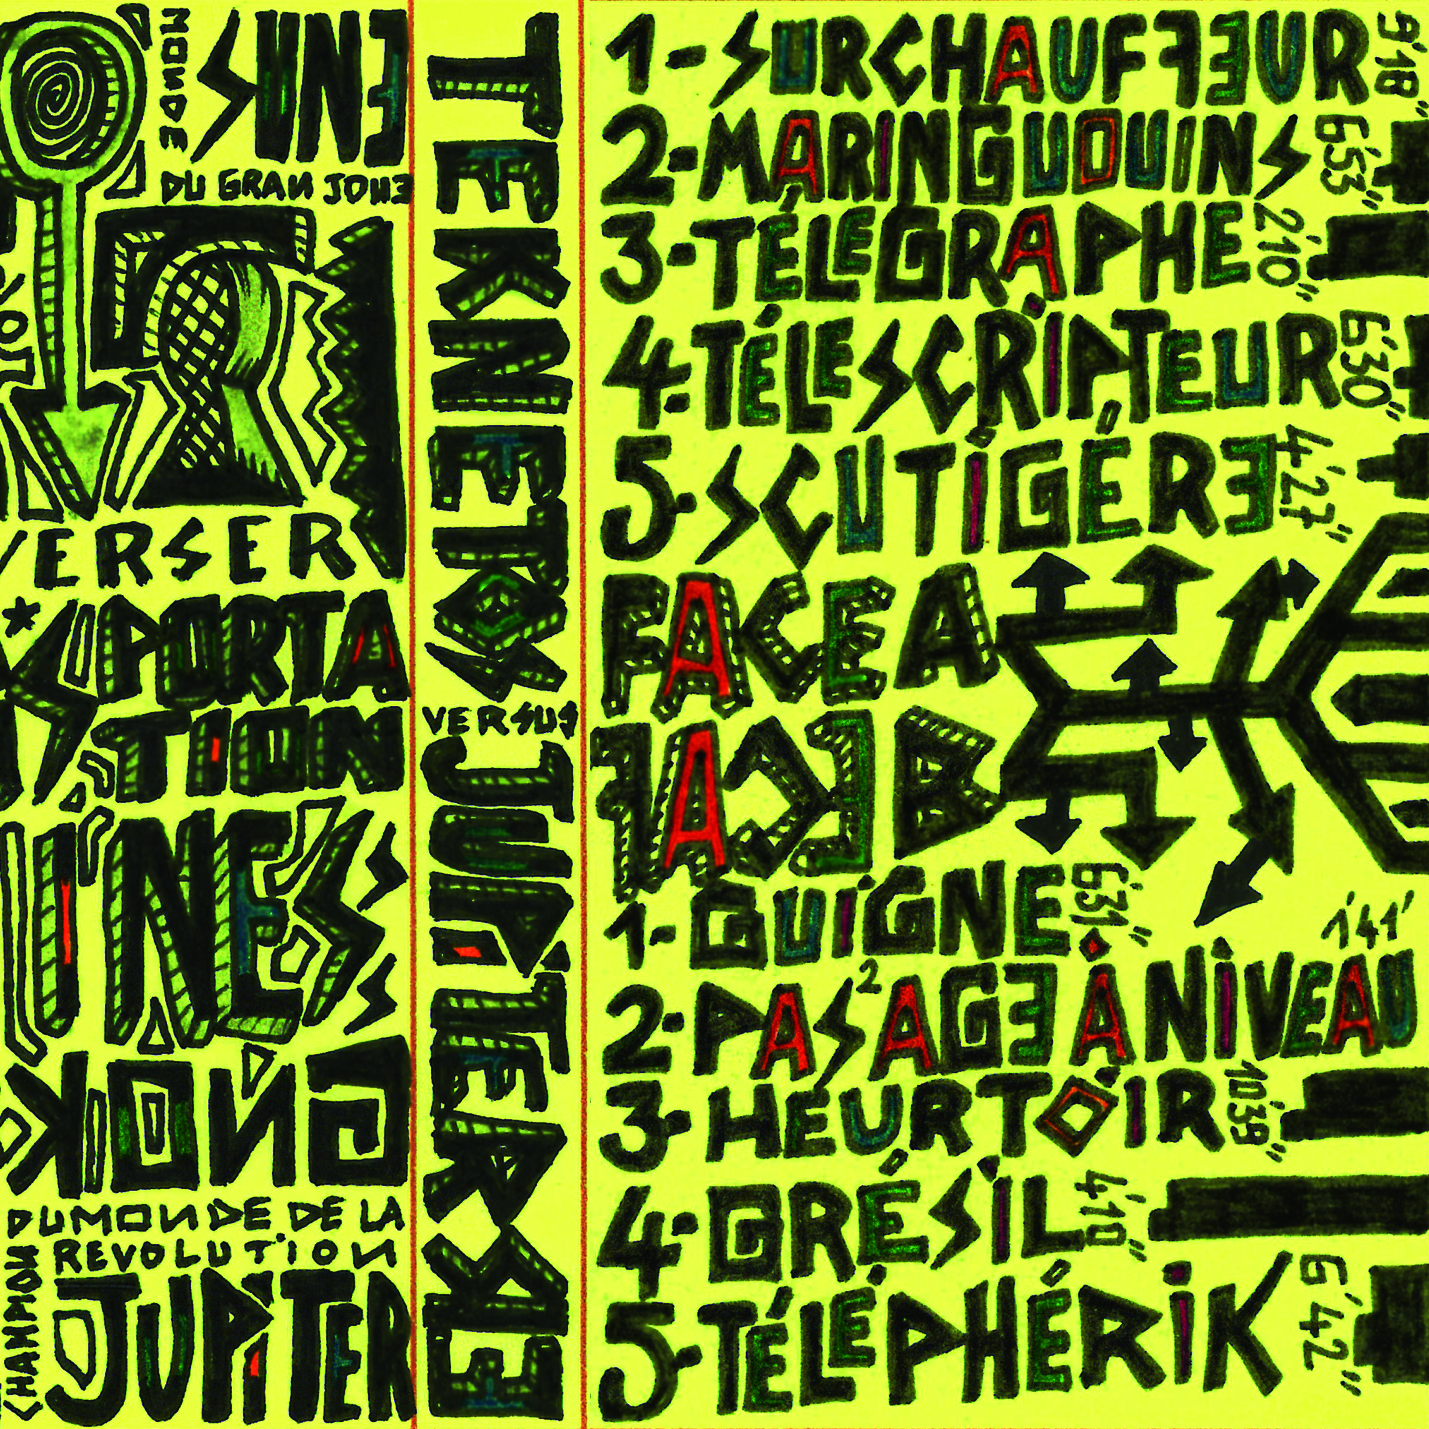 MONDE
SUNE
DU GRAN JOUE
VERSER
PORTA
TION
KONG
DU MONDE DE LA
REVOLUTION
CHANMON
JUPITER
TEKNETOS VERSUS
1- SURCHAUFFEUR 9'18"
2- MARINGUOUINS 6'53"
3- TÉLEGRAPHE 2'10"
4- TÉLESCRIPTEUR 6'30"
5- SCUTIGÉRE 4'27"
FACE A
FACE B
1- GUIGNE 6'31"
2- PAS²AGE À NIVEAU 1'41'
3- HEURTOIR 10'39"
4- GRÉSIL 4'10"
5- TÉLÉPHÉRIK 6'42"